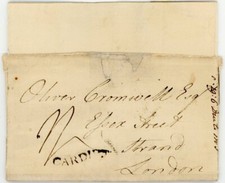 Oliver Cromwell Esqr
Essex Street
Strand
London
CARDIFF